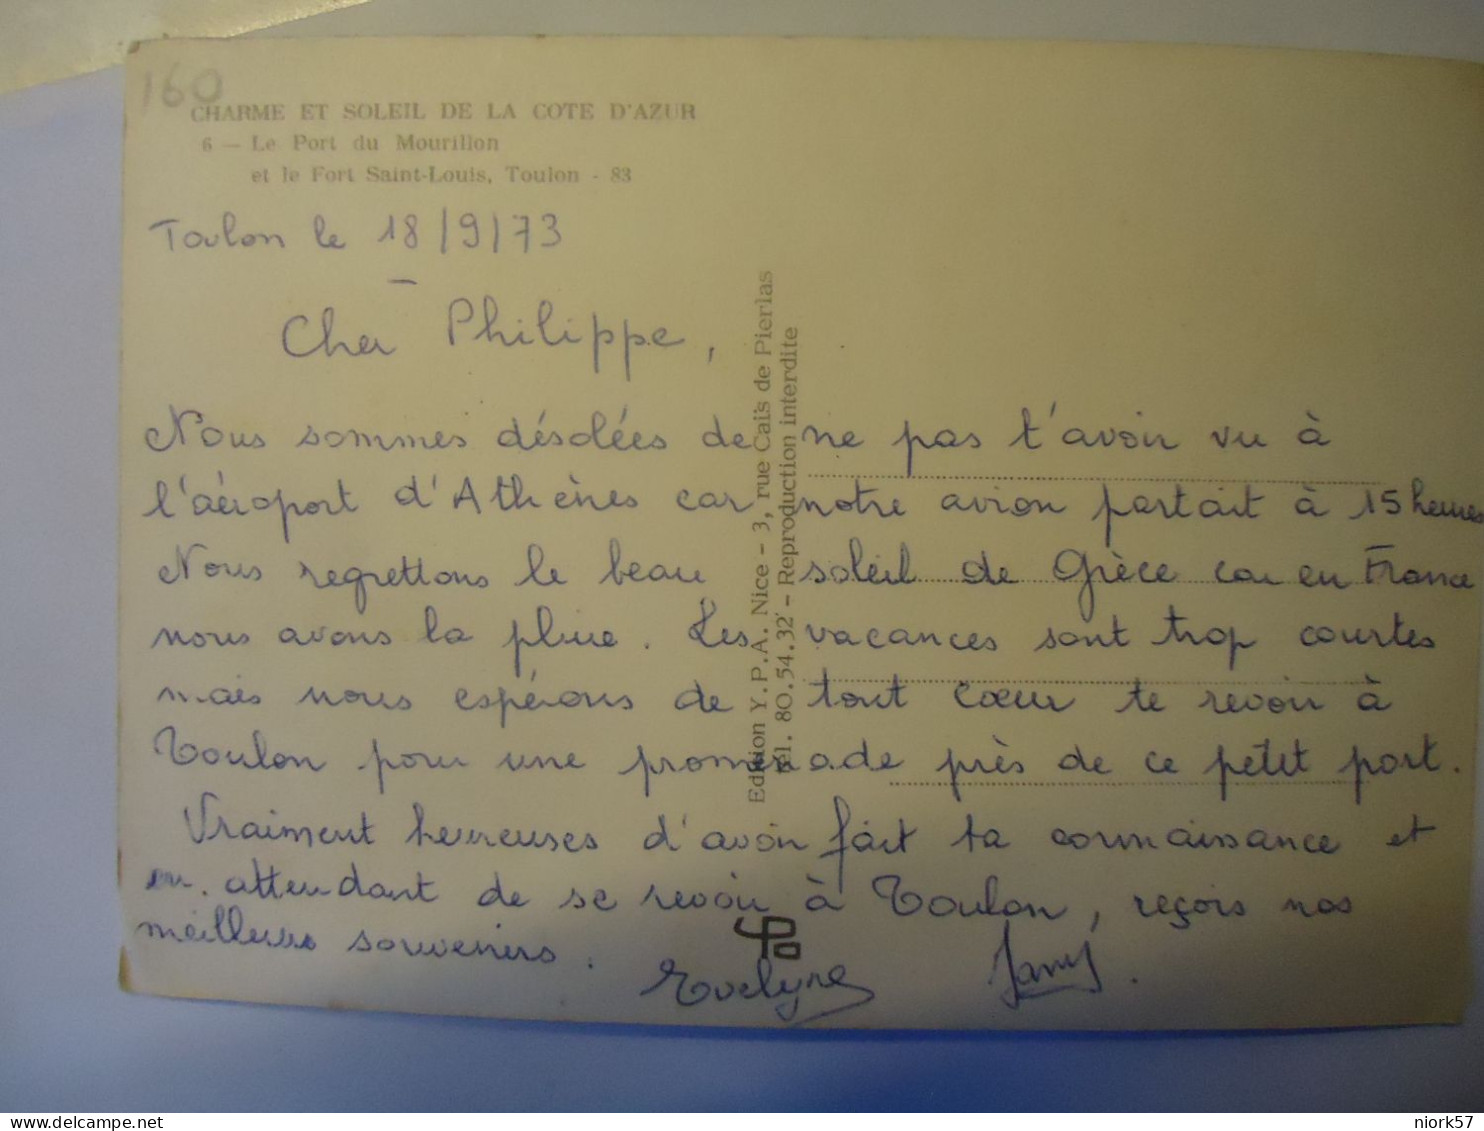 160
CHARME ET SOLEIL DE LA COTE D'AZUR
6 — Le Port du Mourillon
et le Fort Saint-Louis, Toulon - 83
Toulon le 18/9/73
Cher Philippe,
Nous sommes désolées de ne pas t'avoir vu à
l'aéroport d'Athènes car notre avion partait à 15 heures
Nous regrettons le beau soleil de Grèce car en France
nous avons la pluie. Les vacances sont trop courtes
mais nous espérons de tout cœur te revoir à
Toulon pour une promenade près de ce petit port.
Vraiment heureuses d'avoir fait ta connaissance et
en attendant de se revoir à Toulon, reçois nos
meilleurs souvenirs.
Evelyne
Edition Y.P.A. Nice - 3, rue Caïs de Pierlas
tél. 80.54.32 - Reproduction interdite
niork57